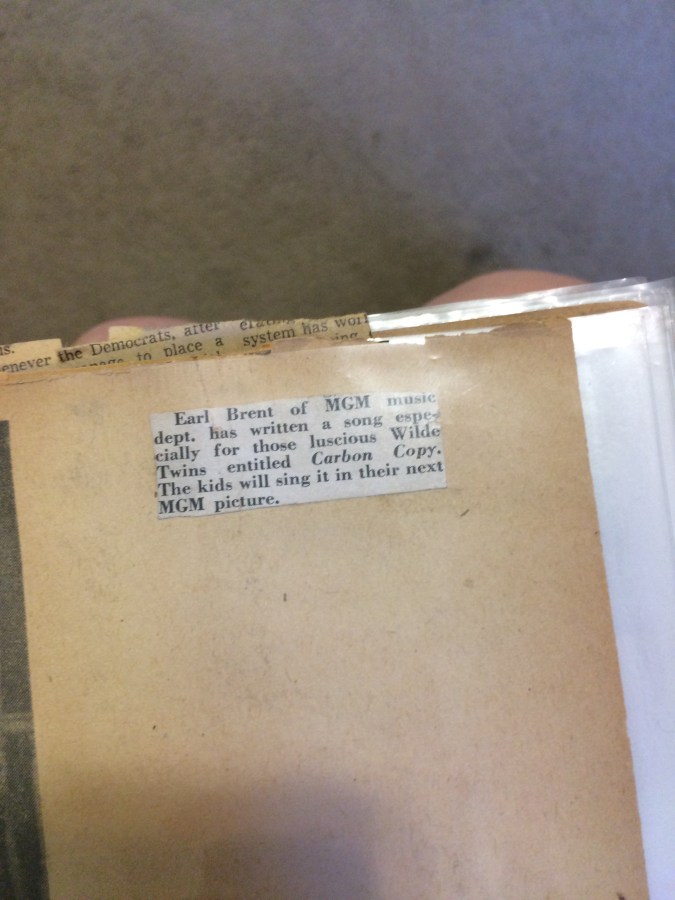 is.
enever the Democrats, after
to place a system has wor
Earl Brent of MGM music
dept. has written a song espe-
cially for those luscious Wilde
Twins entitled Carbon Copy.
The kids will sing it in their next
MGM picture.